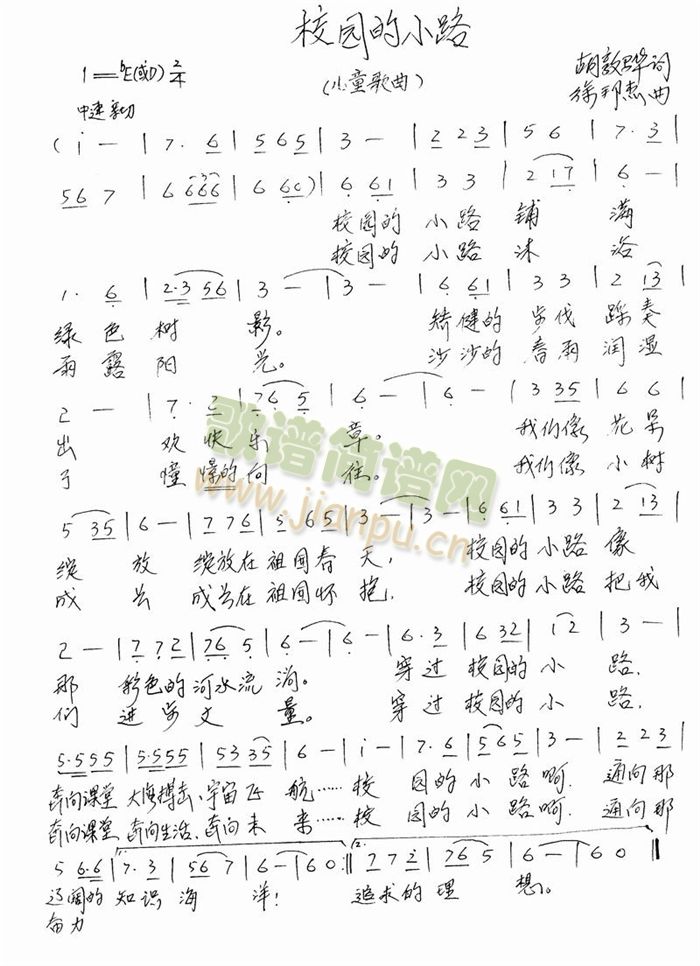 校园的小路
(儿童歌曲)
1=ᵇE(或D) 2/4
胡敦骅词
徐邦杰曲
中速 亲切
(i — | 7· 6 | 5 6 5 | 3 — | 2 2 3 | 5 6 | 7· 3 |
5 6 7 | 6 6 6 6 | 6 6 0) | 6 6 1 | 3 3 | 2 1 7 | 6 — |
校园的 小路 铺 满
校园的 小路 沐 浴
1· 6 | 2·3 5 6 | 3 — | 3 — | 6 6 1 | 3 3 | 2 1 3 |
绿色树 影。 矫健的 步伐 踩奏
雨露阳 光。 沙沙的 春雨 润湿
2 — | 7· 2 | 7 6 5 | 6 — | 6 — | 3 3 5 | 6 6 |
出 欢快乐 章。 我们像 花朵
了 憧憬的向 往。 我们像 小树
5 3 5 | 6 — | 7 7 6 | 5 6 5 | 3 — | 3 — | 6 6 1 | 3 3 | 2 1 3 |
绽 放 绽放在祖国春天, 校园的小路 像
成长 成长在祖国怀抱, 校园的小路 把我
2 — | 7 7 2 | 7 6 5 | 6 — | 6 — | 6·3 | 6 3 2 | i 2 | 3 — |
那 彩色的河水流 淌。 穿过 校园的 小 路,
们 进步丈 量。 穿过 校园的 小 路,
5·5 5 5 | 5·5 5 5 | 5 3 3 5 | 6 — | i — | 7·6 | 5 6 5 | 3 — | 2 2 3 |
奔向课堂 大海搏击、宇宙飞 航……校 园的小路啊, 通向那
奔向课堂、奔向生活、奔向未 来……校 园的小路啊, 通向那
5 6·6 | 1. 7·3 | 5 6 7 | 6 — | 6 0 :‖ 2. 7 7 2 | 7 6 5 | 6 — | 6 0 ‖
辽阔的 知识 海 洋! 追求的理 想。
奋力
歌谱简谱网
www.jianpu.cn